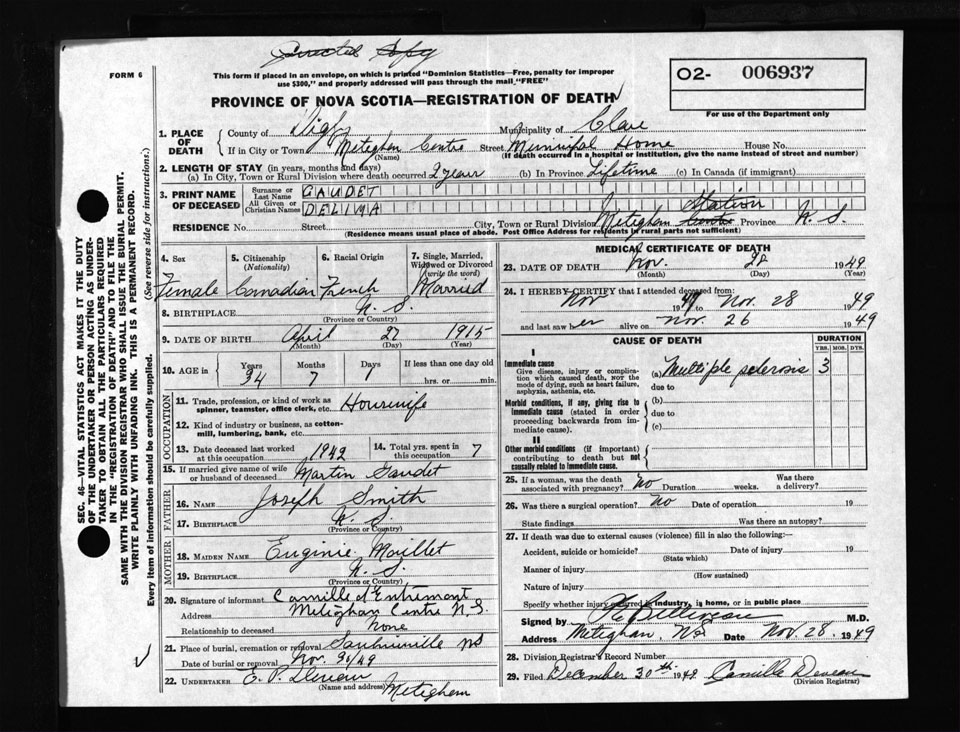 Corrected Copy
FORM 6
This form if placed in an envelope, on which is printed "Dominion Statistics—Free, penalty for improper
use $300," and properly addressed will pass through the mail "FREE"
O2- 006937
PROVINCE OF NOVA SCOTIA—REGISTRATION OF DEATH
For use of the Department only
1. PLACE OF DEATH
County of Digby Municipality of Clare
If in City or Town Meteghan Centre Street Municipal Home House No.
(Name) (If death occurred in a hospital or institution, give the name instead of street and number)
2. LENGTH OF STAY (in years, months and days)
(a) In City, Town or Rural Division where death occurred 2 years (b) In Province Lifetime (c) In Canada (if immigrant)
3. PRINT NAME OF DECEASED
Surname or Last Name GAUDET
All Given or Christian Names DELINA
Station
RESIDENCE No. Street City, Town or Rural Division Meteghan Centre Province N. S.
(Residence means usual place of abode. Post Office Address for residents in rural parts not sufficient)
4. Sex 5. Citizenship (Nationality) 6. Racial Origin 7. Single, Married, Widowed or Divorced (write the word)
Female Canadian French Married
8. BIRTHPLACE N. S.
(Province or Country)
9. DATE OF BIRTH April 27 1915
(Month) (Day) (Year)
10. AGE in Years Months Days If less than one day old
34 7 1 hrs. or min.
OCCUPATION
11. Trade, profession, or kind of work as
spinner, teamster, office clerk, etc. Housewife
12. Kind of industry or business, as cotton-
mill, lumbering, bank, etc.
13. Date deceased last worked
at this occupation 1942
14. Total yrs. spent in
this occupation 7
15. If married give name of wife
or husband of deceased Martin Gaudet
FATHER
16. NAME Joseph Smith
17. BIRTHPLACE N. S.
(Province or Country)
MOTHER
18. MAIDEN NAME Euginie Maillet
19. BIRTHPLACE N. S.
(Province or Country)
20. Signature of informant Camille d'Entremont
Address Meteghan Centre N S.
Relationship to deceased None
21. Place of burial, cremation or removal Saulnierville NS
Date of burial or removal Nov. 30/49
22. UNDERTAKER E. P. Deveau
(Name and address) Meteghan
MEDICAL CERTIFICATE OF DEATH
23. DATE OF DEATH Nov. 28 1949
(Month) (Day) (Year)
24. I HEREBY CERTIFY that I attended deceased from
Nov 1947 to Nov. 28 1949
and last saw her alive on Nov. 26 1949
CAUSE OF DEATH DURATION
YRS. MOS. DYS.
I
Immediate cause
Give disease, injury or complica-
tion which caused death, NOT the
mode of dying, such as heart failure,
asphyxia, asthenia, etc.
(a) Multiple sclerosis 3
due to
Morbid conditions, if any, giving rise to
immediate cause (stated in order
proceeding backwards from im-
mediate cause).
(b)
due to
(c)
II
Other morbid conditions (if important)
contributing to death but not
causally related to immediate cause.
25. If a woman, was the death
associated with pregnancy? No Duration weeks. Was there a delivery?
26. Was there a surgical operation? No Date of operation 19
State findings Was there an autopsy?
27. If death was due to external causes (violence) fill in also the following:—
Accident, suicide or homicide? Date of injury 19
(State which)
Manner of injury
(How sustained)
Nature of injury
Specify whether injury occurred in industry, in home, or in public place
Signed by M.D.
Address Meteghan, N.S. Date Nov. 28 1949
28. Division Registrar's Record Number
29. Filed December 30th 1949. Camille Deveau
(Division Registrar)
SEC. 46—VITAL STATISTICS ACT MAKES IT THE DUTY
OF THE UNDERTAKER OR PERSON ACTING AS UNDER-
TAKER TO OBTAIN ALL THE PARTICULARS REQUIRED
IN THE "REGISTRATION OF DEATH" AND TO FILE THE
SAME WITH THE DIVISION REGISTRAR WHO SHALL ISSUE THE BURIAL PERMIT.
WRITE PLAINLY WITH UNFADING INK. THIS IS A PERMANENT RECORD.
Every item of information should be carefully supplied. (See reverse side for instructions.)